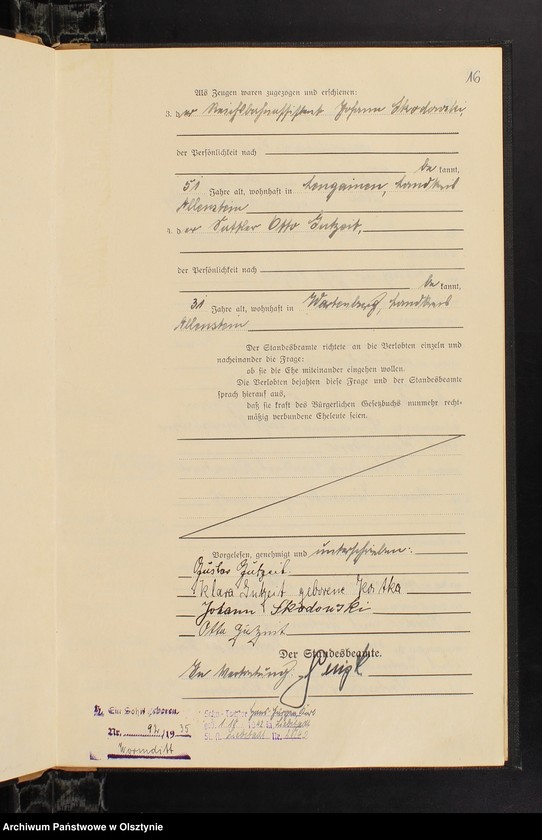 16
Als Zeugen waren zugezogen und erschienen:
3. der Reichsbahnassistent Johann Skodowski
der Persönlichkeit nach
be kannt,
51 Jahre alt, wohnhaft in Lengainen, Landkreis
Allenstein
4. der Sattler Otto Gutzeit,
der Persönlichkeit nach
be kannt,
31 Jahre alt, wohnhaft in Wartenberg, Landkreis
Allenstein
Der Standesbeamte richtete an die Verlobten einzeln und
nacheinander die Frage:
ob sie die Ehe miteinander eingehen wollen.
Die Verlobten bejahten diese Frage und der Standesbeamte
sprach hierauf aus,
daß sie kraft des Bürgerlichen Gesetzbuchs nunmehr recht-
mäßig verbundene Eheleute seien.
Vorgelesen, genehmigt und unterschrieben:
Gustav Gutzeit
Klara Gutzeit geborene Kostka
Johann Skodowski
Otto Gutzeit
Der Standesbeamte.
In Vertretung
Ein Sohn geboren
Nr. /19 35
Wormditt
Liebstadt Nr.
Archiwum Państwowe w Olsztynie